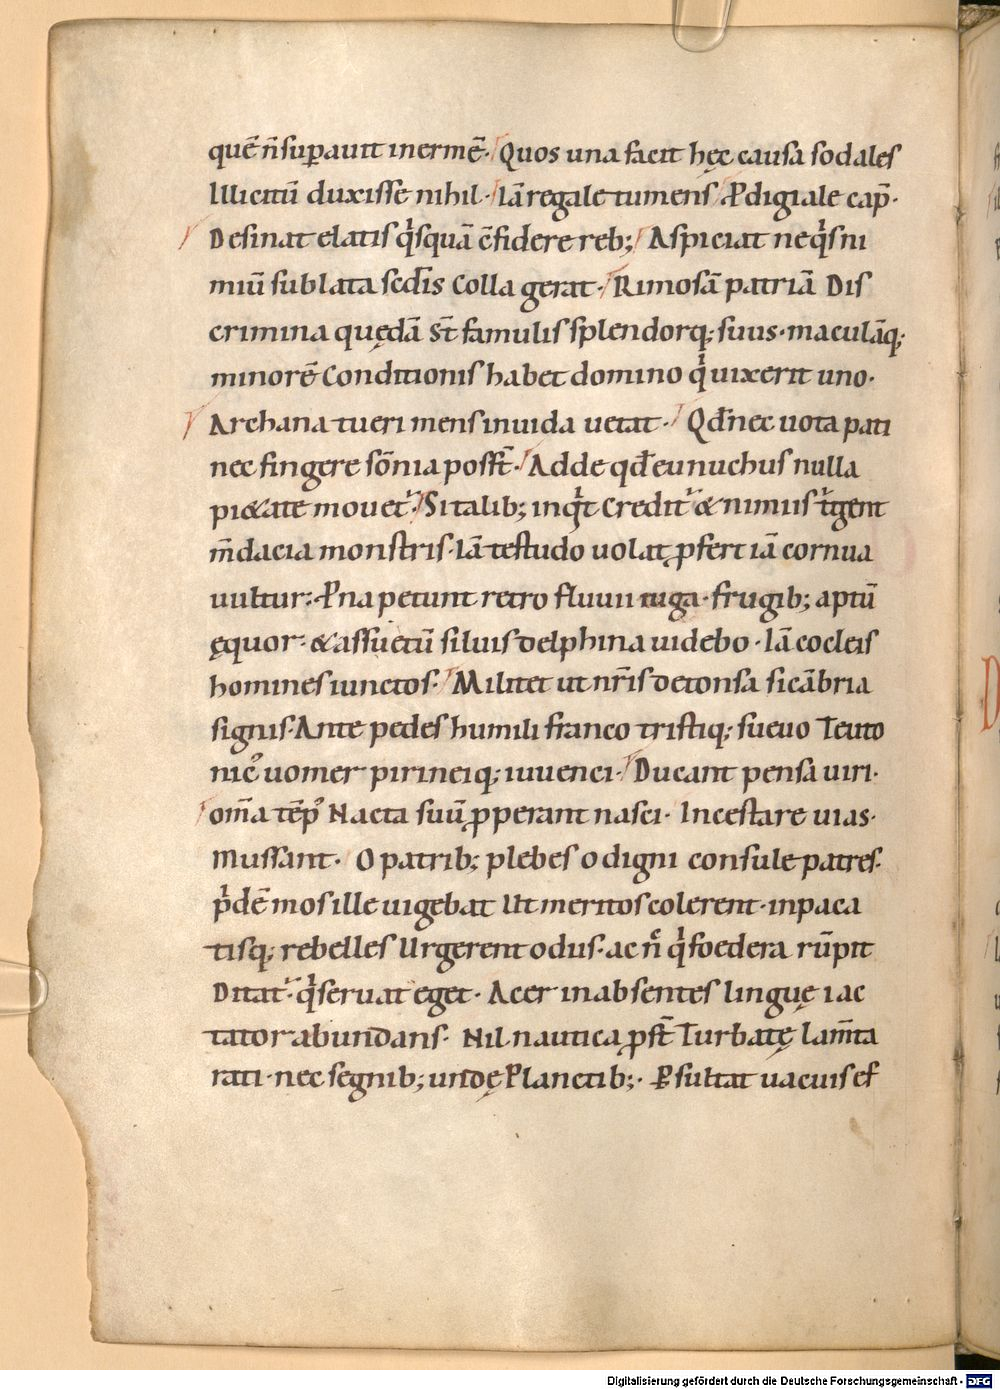 quē n̄ suꝑauit inermē· Quos una facit hęc causa sodales
Illicitū duxisse nihil· Iā regale tumens Ꝓdigiale cap̄·
Desinat elatis qͥsquā c̄fidere reb; Aspiciat neqͥs ni
miū sublata sed̄is Colla gerat· Rimosā patriā Dis
crimina quędā st̄ famulis splendorq; suus· maculāq;
minorē Conditionis habet domino qͥ uixerit uno·
Archana tueri mens inuida uetat· Qd̄ nec uota pati
nec fingere sōnia poss̄t· Adde qd̄ eunuchus nulla
pi&ate mouet᷒· Si talib; inqͥt Credit᷒ & nimiis t᷒gent
m̄dacia monstris· Iā testudo uolat ꝓfert iā cornua
uultur· Ꝓna petunt retro fluuii iuga· frugib; aptū
ęquor· & assuetū siluis delphina uidebo· Iā cocleis
homines iunctos· Militet ut nr̄is detonsa sicābria
signis· Ante pedes humili franco tristiq; sueuo Teuto
nicꝰ uomer pirineiq; iuuenci· Ducant pensa uiri·
om̄a tēpꝰ Nacta suū ꝓperant nasci· Incestare uias·
Mussant· O patrib; plebes o digni consule patres·
pͥdē mos ille uigebat Ut meritos colerent· inpaca
tisq; rebelles Urgerent odiis· ac n̄ qͥ foedera rūpit
Ditat᷒· qͥ seruat eget· Acer in absentes linguę iac
tator abundans· Nil nautica ꝓst̄ Turbatę lam̄ta
rati· nec segnib; undę Planctib;· Ꝑsultat uacuis ef
Digitalisierung gefördert durch die Deutsche Forschungsgemeinschaft - DFG